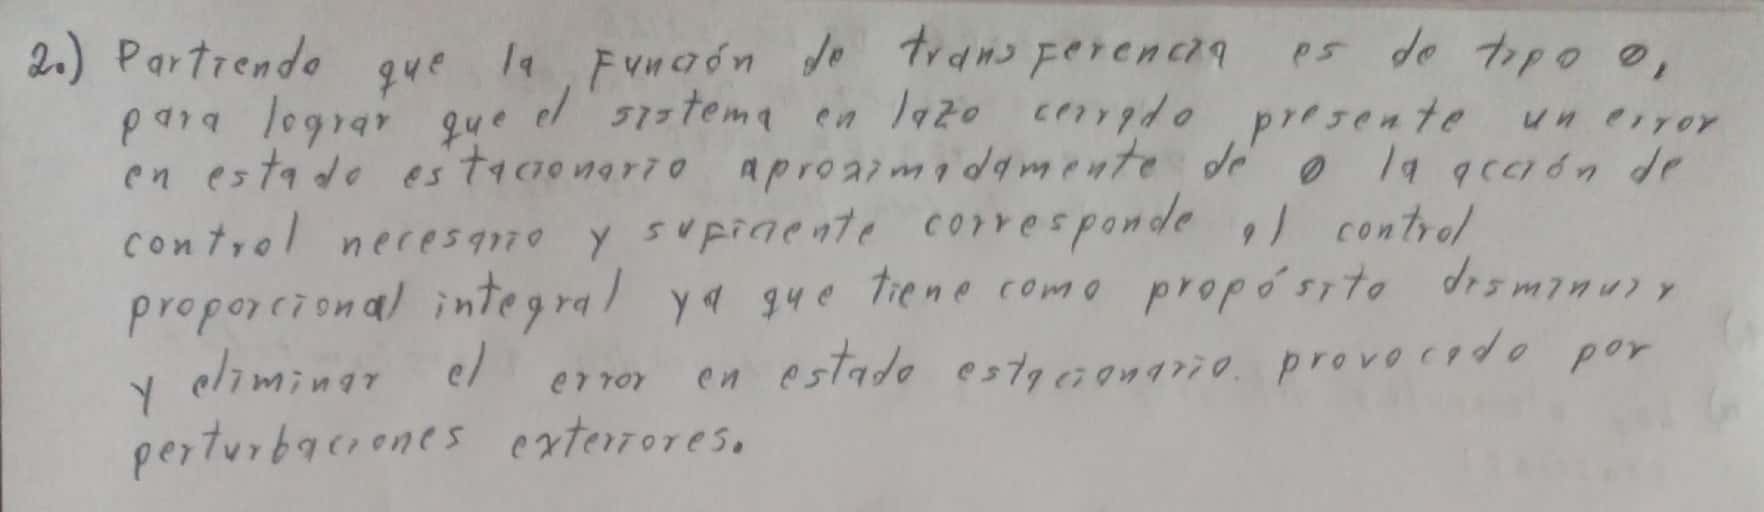 2.) Partiendo que la Función de transferencia es de tipo 0,
para lograr que el sistema en lazo cerrado presente un error
en estado estacionario aproximadamente de 0 la acción de
control necesario y suficiente corresponde al control
proporcional integral ya que tiene como propósito disminuir
y eliminar el error en estado estacionario. provocado por
perturbaciones exteriores.